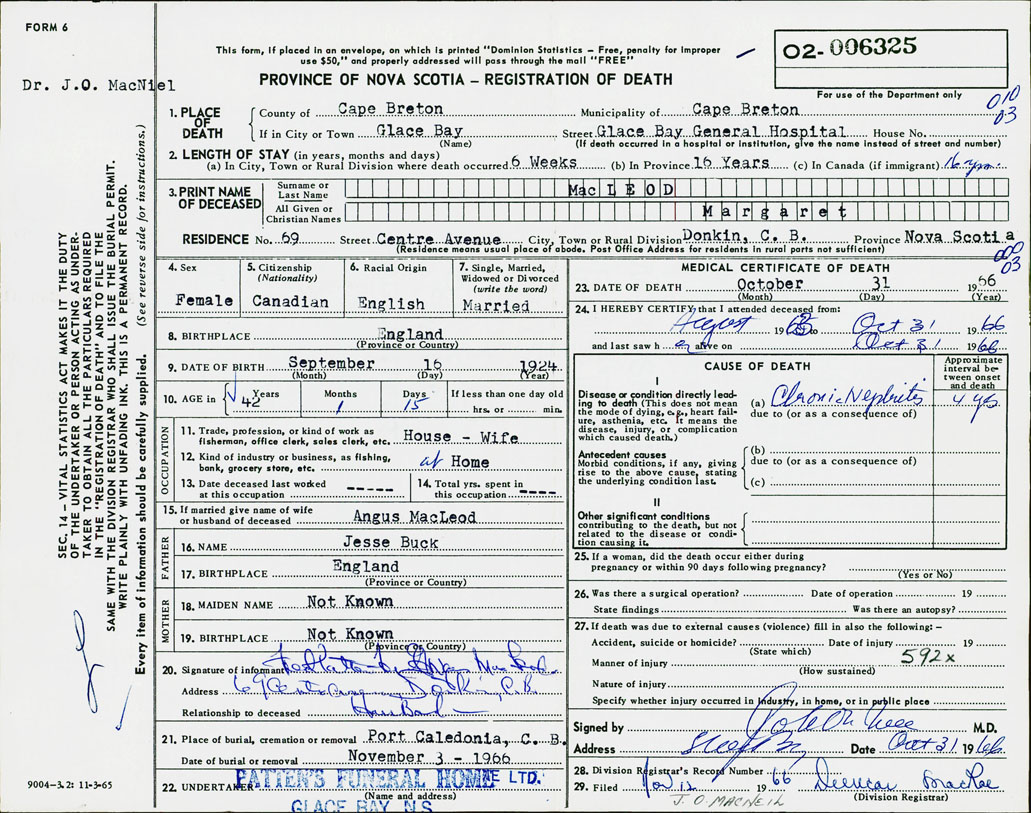 FORM 6
This form, if placed in an envelope, on which is printed "Dominion Statistics – Free, penalty for improper
use $50," and properly addressed will pass through the mail "FREE"
02-006325
PROVINCE OF NOVA SCOTIA – REGISTRATION OF DEATH
For use of the Department only
Dr. J.O. MacNiel
010
03
1. PLACE OF DEATH
County of Cape Breton Municipality of Cape Breton
If in City or Town Glace Bay Street Glace Bay General Hospital House No.
(Name) (If death occurred in a hospital or institution, give the name instead of street and number)
2. LENGTH OF STAY (in years, months and days)
(a) In City, Town or Rural Division where death occurred 6 Weeks (b) In Province 16 Years (c) In Canada (if immigrant) 16 yrs
3. PRINT NAME OF DECEASED
Surname or Last Name MacLEOD
All Given or Christian Names Margaret
RESIDENCE No. 69 Street Centre Avenue City, Town or Rural Division Donkin, C. B. Province Nova Scotia
(Residence means usual place of abode. Post Office Address for residents in rural parts not sufficient)
03
4. Sex
Female
5. Citizenship
(Nationality)
Canadian
6. Racial Origin
English
7. Single, Married,
Widowed or Divorced
(write the word)
Married
8. BIRTHPLACE England
(Province or Country)
9. DATE OF BIRTH September 16 1924
(Month) (Day) (Year)
10. AGE in Years Months Days If less than one day old
42 1 15 hrs. or min.
OCCUPATION
11. Trade, profession, or kind of work as
fisherman, office clerk, sales clerk, etc. House - Wife
12. Kind of industry or business, as fishing,
bank, grocery store, etc. at Home
13. Date deceased last worked
at this occupation -----
14. Total yrs. spent in
this occupation -----
15. If married give name of wife
or husband of deceased Angus MacLeod
FATHER
16. NAME Jesse Buck
17. BIRTHPLACE England
(Province or Country)
MOTHER
18. MAIDEN NAME Not Known
19. BIRTHPLACE Not Known
(Province or Country)
20. Signature of informant
Address 69 Donkin, C.B.
Relationship to deceased Husband
21. Place of burial, cremation or removal Port Caledonia, C. B.
Date of burial or removal November 3 - 1966
22. UNDERTAKER PATTEN'S FUNERAL HOME LTD.
(Name and address)
GLACE BAY, N.S.
MEDICAL CERTIFICATE OF DEATH
23. DATE OF DEATH October 31 1966
(Month) (Day) (Year)
24. I HEREBY CERTIFY that I attended deceased from:
August 19 to Oct 31 1966
and last saw h er alive on Oct 31 1966
CAUSE OF DEATH
Approximate
interval be-
tween onset
and death
I
Disease or condition directly lead-
ing to death (This does not mean
the mode of dying, e.g., heart fail-
ure, asthenia, etc. It means the
disease, injury, or complication
which caused death.)
(a) Chronic Nephritis 4 yrs
due to (or as a consequence of)
Antecedent causes
Morbid conditions, if any, giving
rise to the above cause, stating
the underlying condition last.
(b)
due to (or as a consequence of)
(c)
II
Other significant conditions
contributing to the death, but not
related to the disease or condi-
tion causing it.
25. If a woman, did the death occur either during
pregnancy or within 90 days following pregnancy?
(Yes or No)
26. Was there a surgical operation? Date of operation 19
State findings Was there an autopsy?
27. If death was due to external causes (violence) fill in also the following:–
Accident, suicide or homicide? Date of injury 19
(State which)
592x
Manner of injury
(How sustained)
Nature of injury
Specify whether injury occurred in industry, in home, or in public place
Signed by M.D.
Address Date Oct 31 1966
28. Division Registrar's Record Number
29. Filed Nov 12 1966 Duncan MacRae
(Division Registrar)
J. O. MACNEIL
SEC. 14 – VITAL STATISTICS ACT MAKES IT THE DUTY
OF THE UNDERTAKER OR PERSON ACTING AS UNDER-
TAKER TO OBTAIN ALL THE PARTICULARS REQUIRED
IN THE "REGISTRATION OF DEATH" AND TO FILE THE
SAME WITH THE DIVISION REGISTRAR WHO SHALL ISSUE THE BURIAL PERMIT.
WRITE PLAINLY WITH UNFADING INK. THIS IS A PERMANENT RECORD.
Every item of information should be carefully supplied. (See reverse side for instructions.)
9004-3.2: 11-3-65